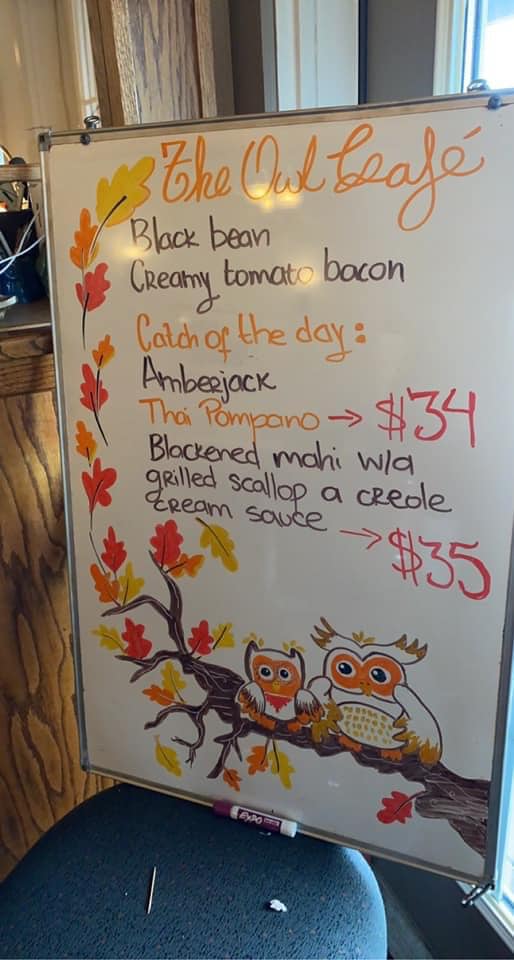 The Owl Cafe'
Black bean
Creamy tomato bacon
Catch of the day:
Amberjack
Thai Pompano → $34
Blackened mahi w/a
grilled scallop a creole
cream sauce
→ $35
EXPO